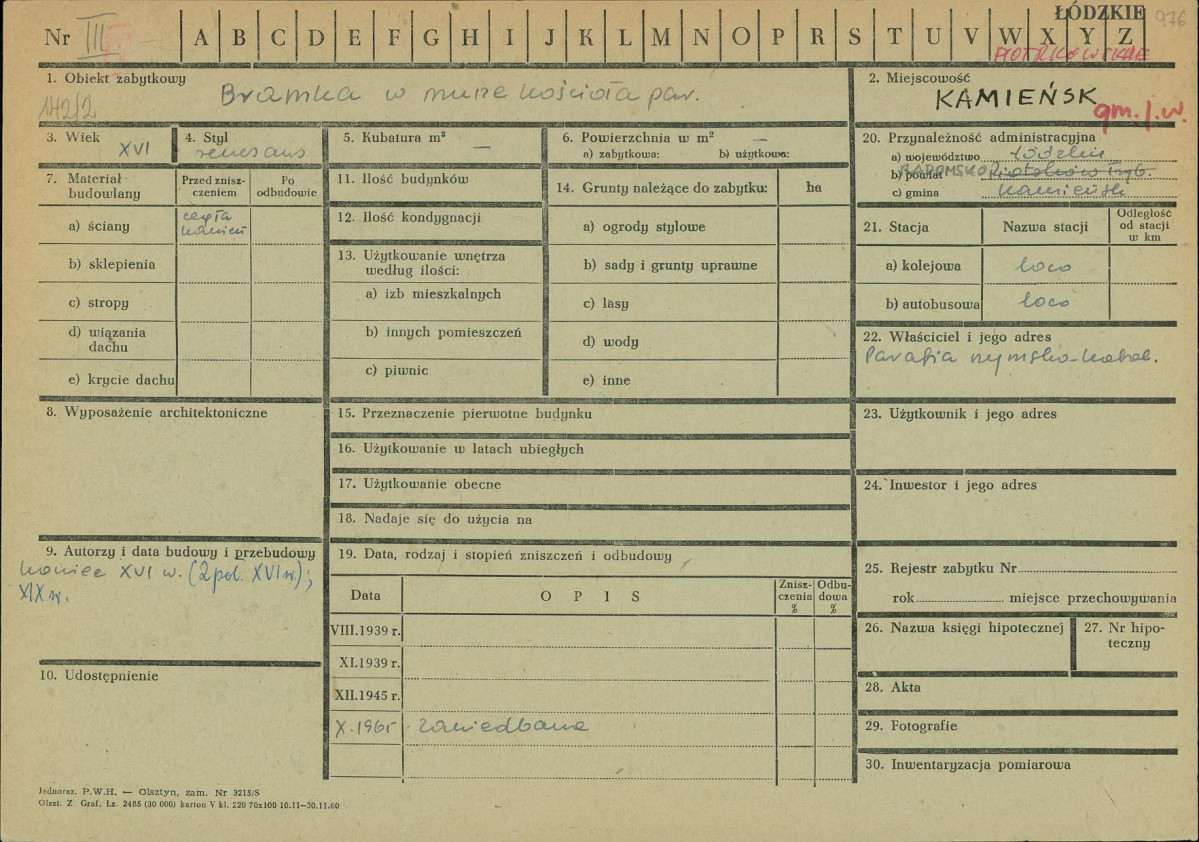 Nr III
A B C D E F G H I J K L M N O P R S T U V W X Y Z
ŁÓDZKIE
976
PIOTRKOWSKIE
1. Obiekt zabytkowy
142/2
Bramka w murze kościoła par.
2. Miejscowość
KAMIEŃSK
gm. l. w.
3. Wiek
XVI
4. Styl
renesans
5. Kubatura m³
—
6. Powierzchnia w m² —
a) zabytkowa: b) użytkowa:
7. Materiał budowlany
Przed zniszczeniem
Po odbudowie
a) ściany
cegła
kamień
b) sklepienia
c) stropy
d) wiązania dachu
e) krycie dachu
11. Ilość budynków
12. Ilość kondygnacji
13. Użytkowanie wnętrza
według ilości:
a) izb mieszkalnych
b) innych pomieszczeń
c) piwnic
14. Grunty należące do zabytku: ha
a) ogrody stylowe
b) sady i grunty uprawne
c) lasy
d) wody
e) inne
20. Przynależność administracyjna
a) województwo łódzkie
b) powiat RADOMSKO Piotrków Tryb.
c) gmina Kamieńsk
21. Stacja
Nazwa stacji
Odległość
od stacji
w km
a) kolejowa loco
b) autobusowa loco
22. Właściciel i jego adres
Parafia rzymsko-katol.
8. Wyposażenie architektoniczne
15. Przeznaczenie pierwotne budynku
16. Użytkowanie w latach ubiegłych
17. Użytkowanie obecne
18. Nadaje się do użycia na
23. Użytkownik i jego adres
24. Inwestor i jego adres
9. Autorzy i data budowy i przebudowy
koniec XVI w. (2 poł. XVI w.);
XIX w.
10. Udostępnienie
19. Data, rodzaj i stopień zniszczeń i odbudowy
Data
O P I S
Znisz-
czenia
%
Odbu-
dowa
%
VIII.1939 r.
XI.1939 r.
XII.1945 r.
X.1965 zaniedbana
25. Rejestr zabytku Nr
rok miejsce przechowywania
26. Nazwa księgi hipotecznej
27. Nr hipo-
teczny
28. Akta
29. Fotografie
30. Inwentaryzacja pomiarowa
Jednoraz. P.W.H. — Olsztyn, zam. Nr 3215/S
Olszt. Z. Graf. Lz. 2485 (30 000) karton V kl. 220 70x100 10.11—30.11.60